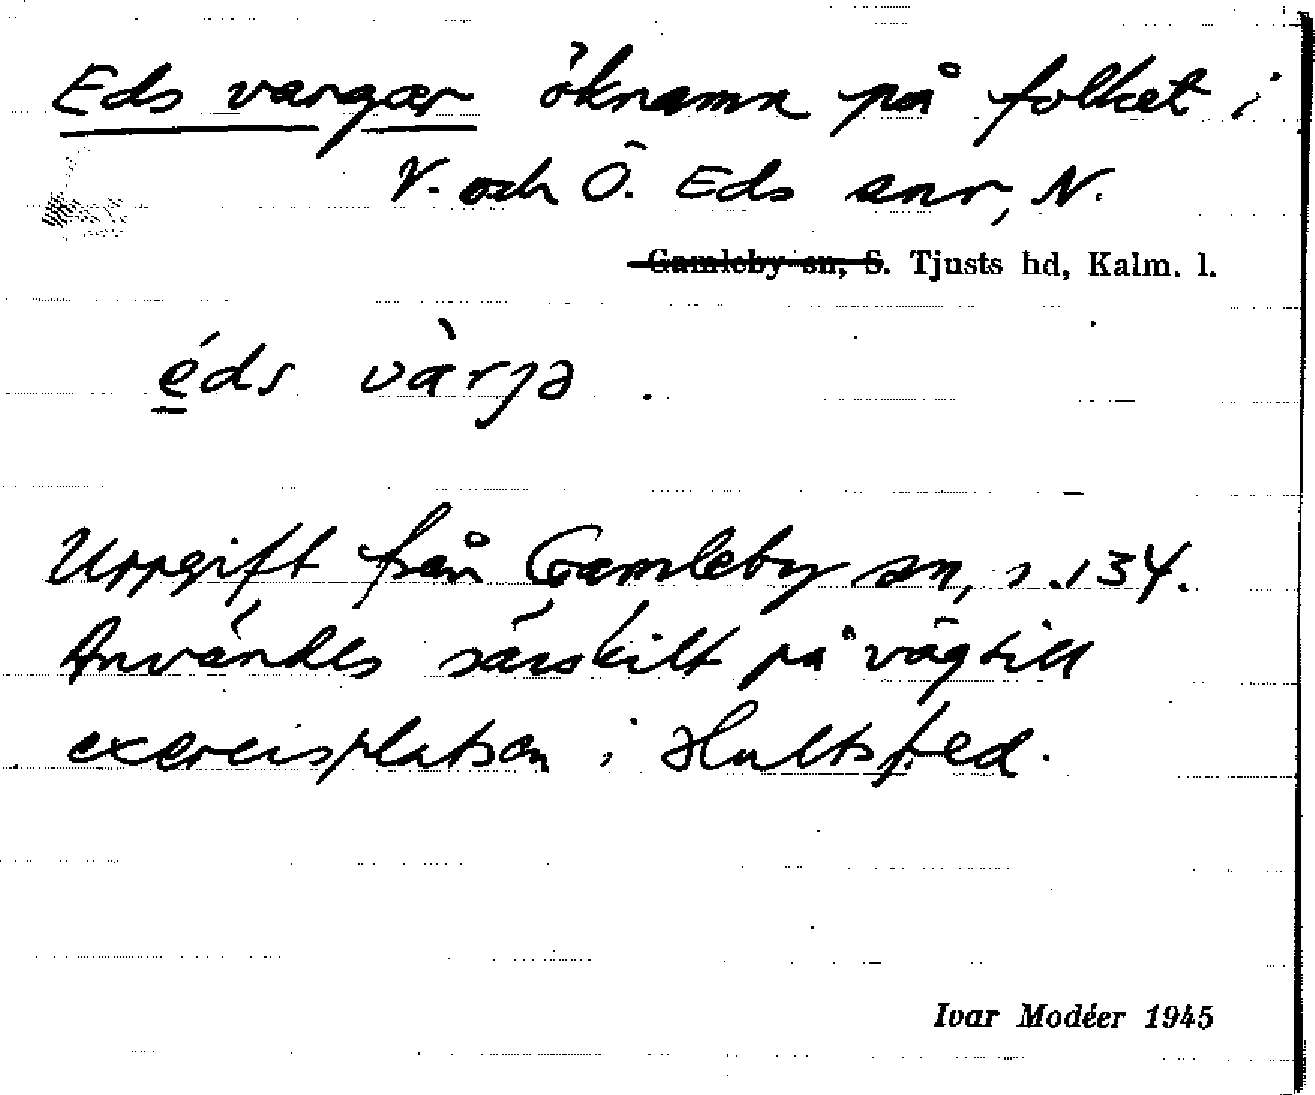 Eds vargar öknamn på folket i
V. och Ö. Eds snr, N.
Gamleby sn, S. Tjusts hd, Kalm. l.
éds vàrjə.
Uppgift från Gamleby sn, s. 134.
Användes särskilt på väg till
exercisplatsen i Hultsfred.
Ivar Modéer 1945